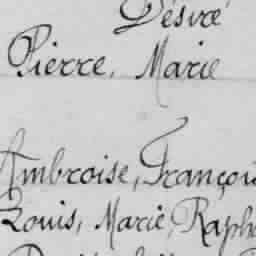 Désiré
Pierre, Marie
Ambroise, François
Louis, Marie, Raph